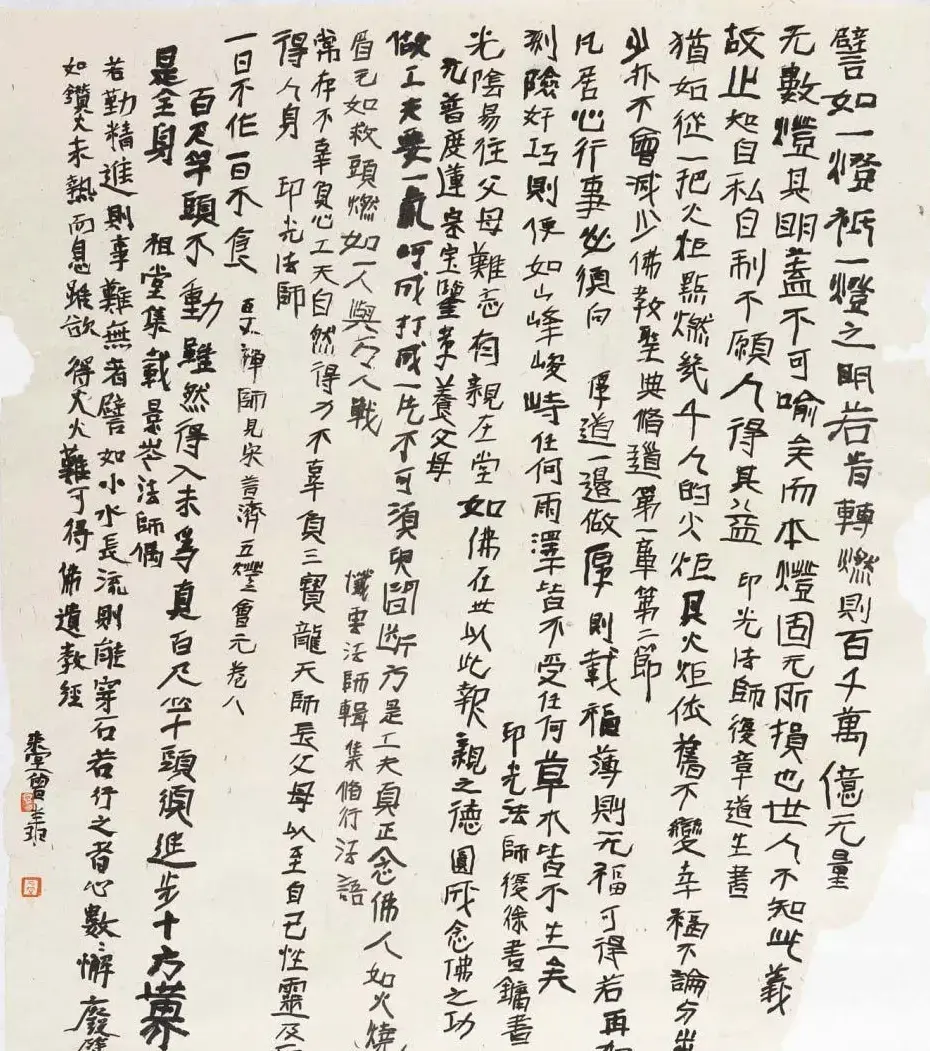 譬如一燈祇一燈之明若肯轉燃則百千萬億无量
无數燈其明蓋不可喻矣而本燈固无所損也世人不知此義
故止知自私自利不願人得其益 印光法師復章道生書
猶如從一把火炬點燃幾千人的火炬其火炬依舊不變幸福不論分出
少亦不會減少佛教聖典脩道第一章第二節
凡居心行事必須向厚道一邊做厚則載福薄則无福可得若再加
刻險奸巧則便如山峰峻峙任何雨澤皆不受任何草木皆不生矣
印光法師復徐書鏞書
光陰易往父母難忘有親在堂如佛在世以此報親之德圓成念佛之功
元普度蓮宗寶鑒孝養父母
做工夫要一氣呵成打成一片不可須臾間斷方是工夫真正念佛人如火燒
眉毛如救頭燃如一人與萬人戰
懺雲法師輯集脩行法語
常存不辜負心工夫自然得力不辜負三寶龍天師長父母以至自己性靈及
得人身 印光法師
一日不作一日不食 百丈禪師見宋普濟五燈會元卷八
百尺竿頭不動雖然得入未為真百尺竿頭須進步十方世界
是全身 祖堂集載景岑法師偈
若勤精進則事難無者譬如小水長流則能穿石若行之者心數數懈廢譬
如鑽火未熱而息雖欲得火火難可得 佛遺教經